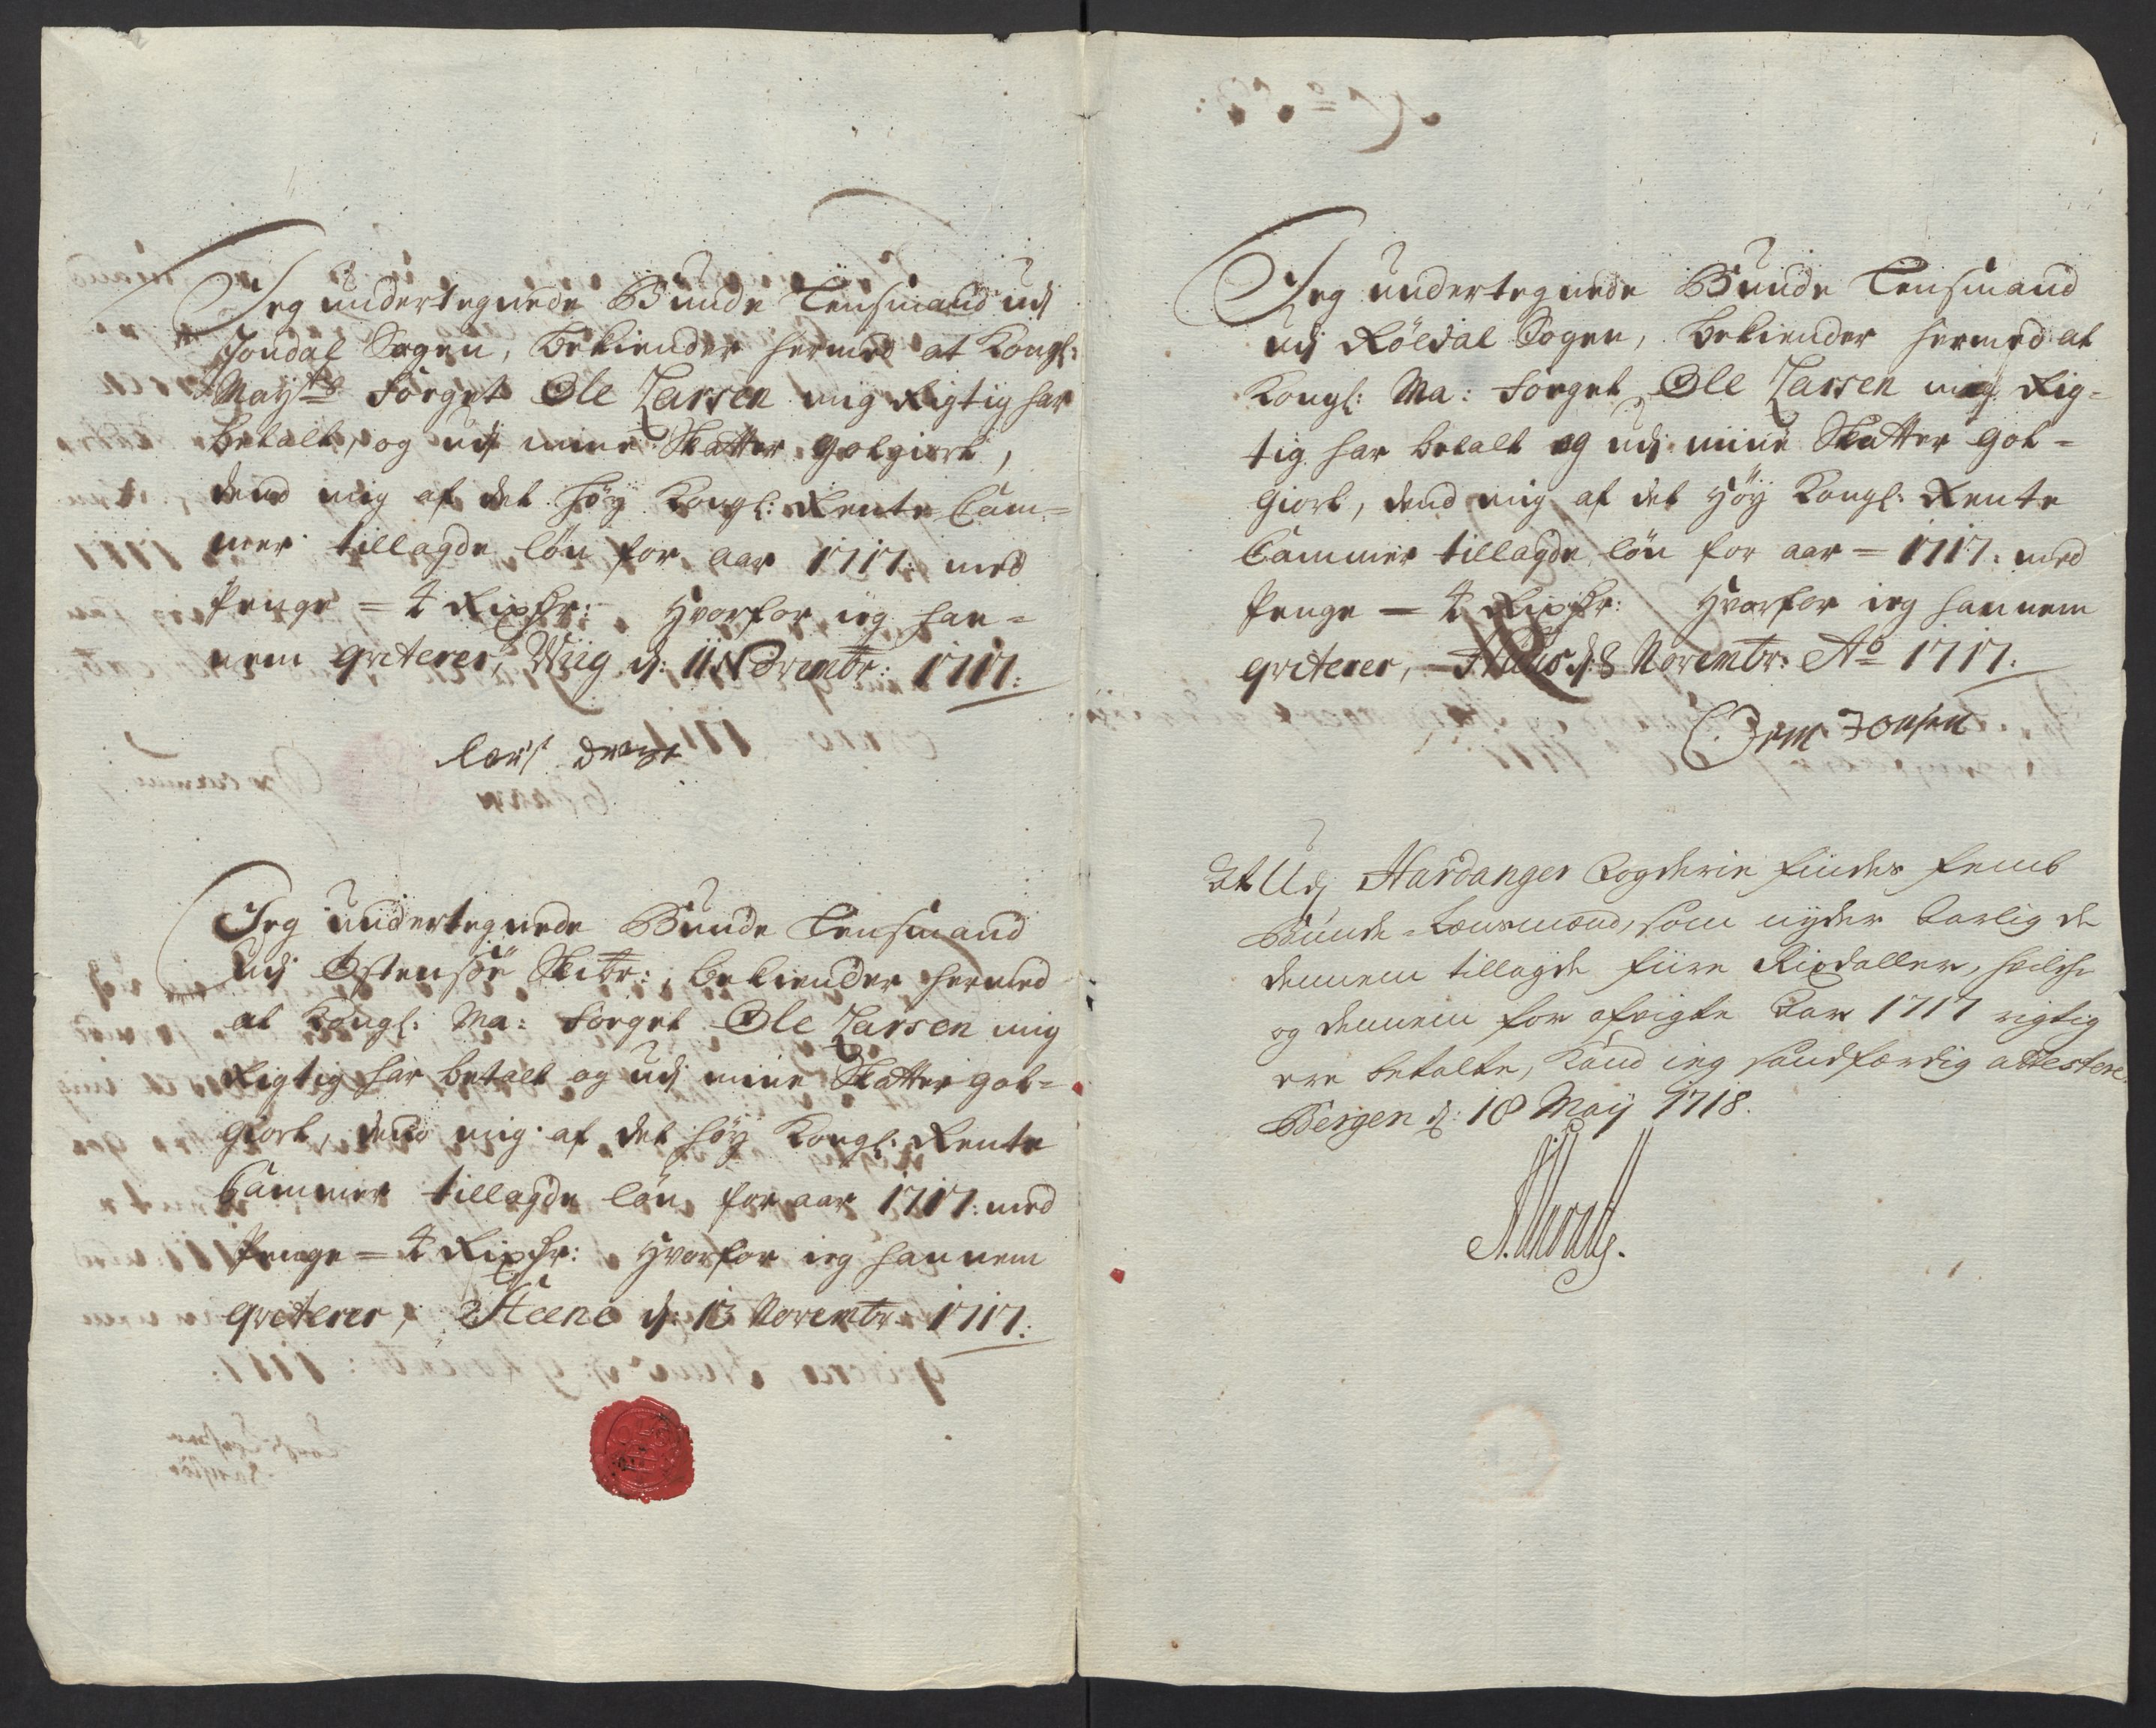 Jeg undertegnede Bunde Lensmand udj
Jondal Sogen, bekiender hermed at Kongl:
Mayts Foiget Ole Larsen mig Rigtig har
betalt, og udj mine Skatter gotgiort,
dend mig af det høy Kongl: Rente Cam=
mer tillagde løn for aar 1717: med
Penge = 4 Rixdr: Hvorfor ieg han=
nem qviterer, Wiig d: 11 Novembr: 1717:
Jeg undertegnede Bunde Lensmand
udj Østensøe Skibr:, bekiender hermed
at Kongl: Ma: Foiget Ole Larsen mig
Rigtig har betalt og udj mine Skatter got=
giort, dend mig af det høy Kongl: Rente
Cammer tillagde løn for aar 1717: med
Penge = 4 Rixdr: Hvorfor ieg hannem
qviterer, Steene d: 13 Novembr 1717:
Jeg undertegnede Bunde Lensmand
udj Röldal Sogen, bekiender hermed at
Kongl: Ma: Foiget Ole Larsen mig Rig=
tig har betalt og udj mine Skatter got=
giort, dend mig af det Høy Kongl: Rente
Cammer tillagde løn for aar = 1717: med
Penge = 4 Rixdr: Hvorfor ieg hannem
qviterer, d: 8 Novembr: Ao 1717:
Orm Jonsen
At Udj Hardanger Fogderie findes femb
Bunde-Lensmænd, som nyder Aarlig de
dennem tillagde fiire Rixdaller, hvilche
og dennem for afvigte Aar 1717 rigtig
ere betalte, Kand ieg sandfærdig attestere
Bergen d: 18 Maÿ 1718.